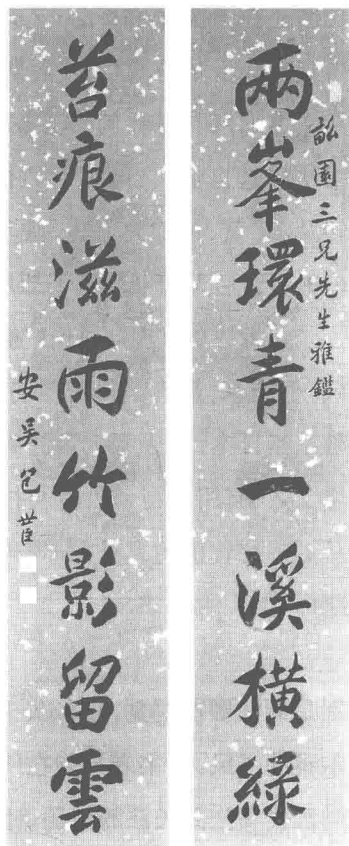 兩峯環青一溪橫綠
畝園三兄先生雅鑑
苔痕滋雨竹影留雲
安吳包世臣